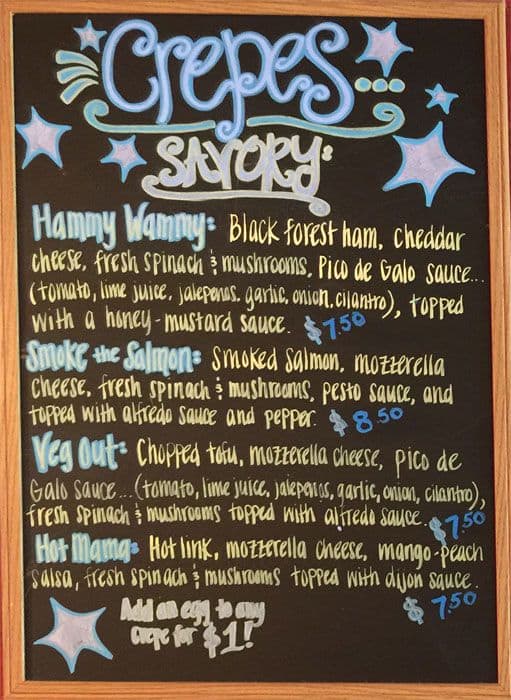 Crepes...
Savory:
Hammy Wammy: Black forest ham, cheddar
cheese, fresh spinach & mushrooms, Pico de Galo sauce...
(tomato, lime juice, jalepenos, garlic, onion, cilantro), topped
with a honey-mustard sauce. $7.50
Smoke the Salmon: Smoked Salmon, mozzerella
cheese, fresh spinach & mushrooms, pesto sauce, and
topped with alfredo sauce and pepper. $8.50
Veg Out: Chopped tofu, mozzerella cheese, pico de
Galo sauce...(tomato, lime juice, jalepenos, garlic, onion, cilantro),
fresh spinach & mushrooms topped with alfredo sauce. $7.50
Hot Mama: Hot link, mozzerella cheese, mango-peach
salsa, fresh spinach & mushrooms topped with dijon sauce.
$7.50
Add an egg to any
crepe for $1!